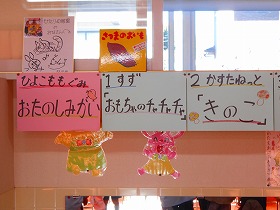 さつまのおいも
ひよこももぐみ
おたのしみかい
1 すず
「おもちゃのチャチャチャ」
2 かすたねっと
「きのこ」